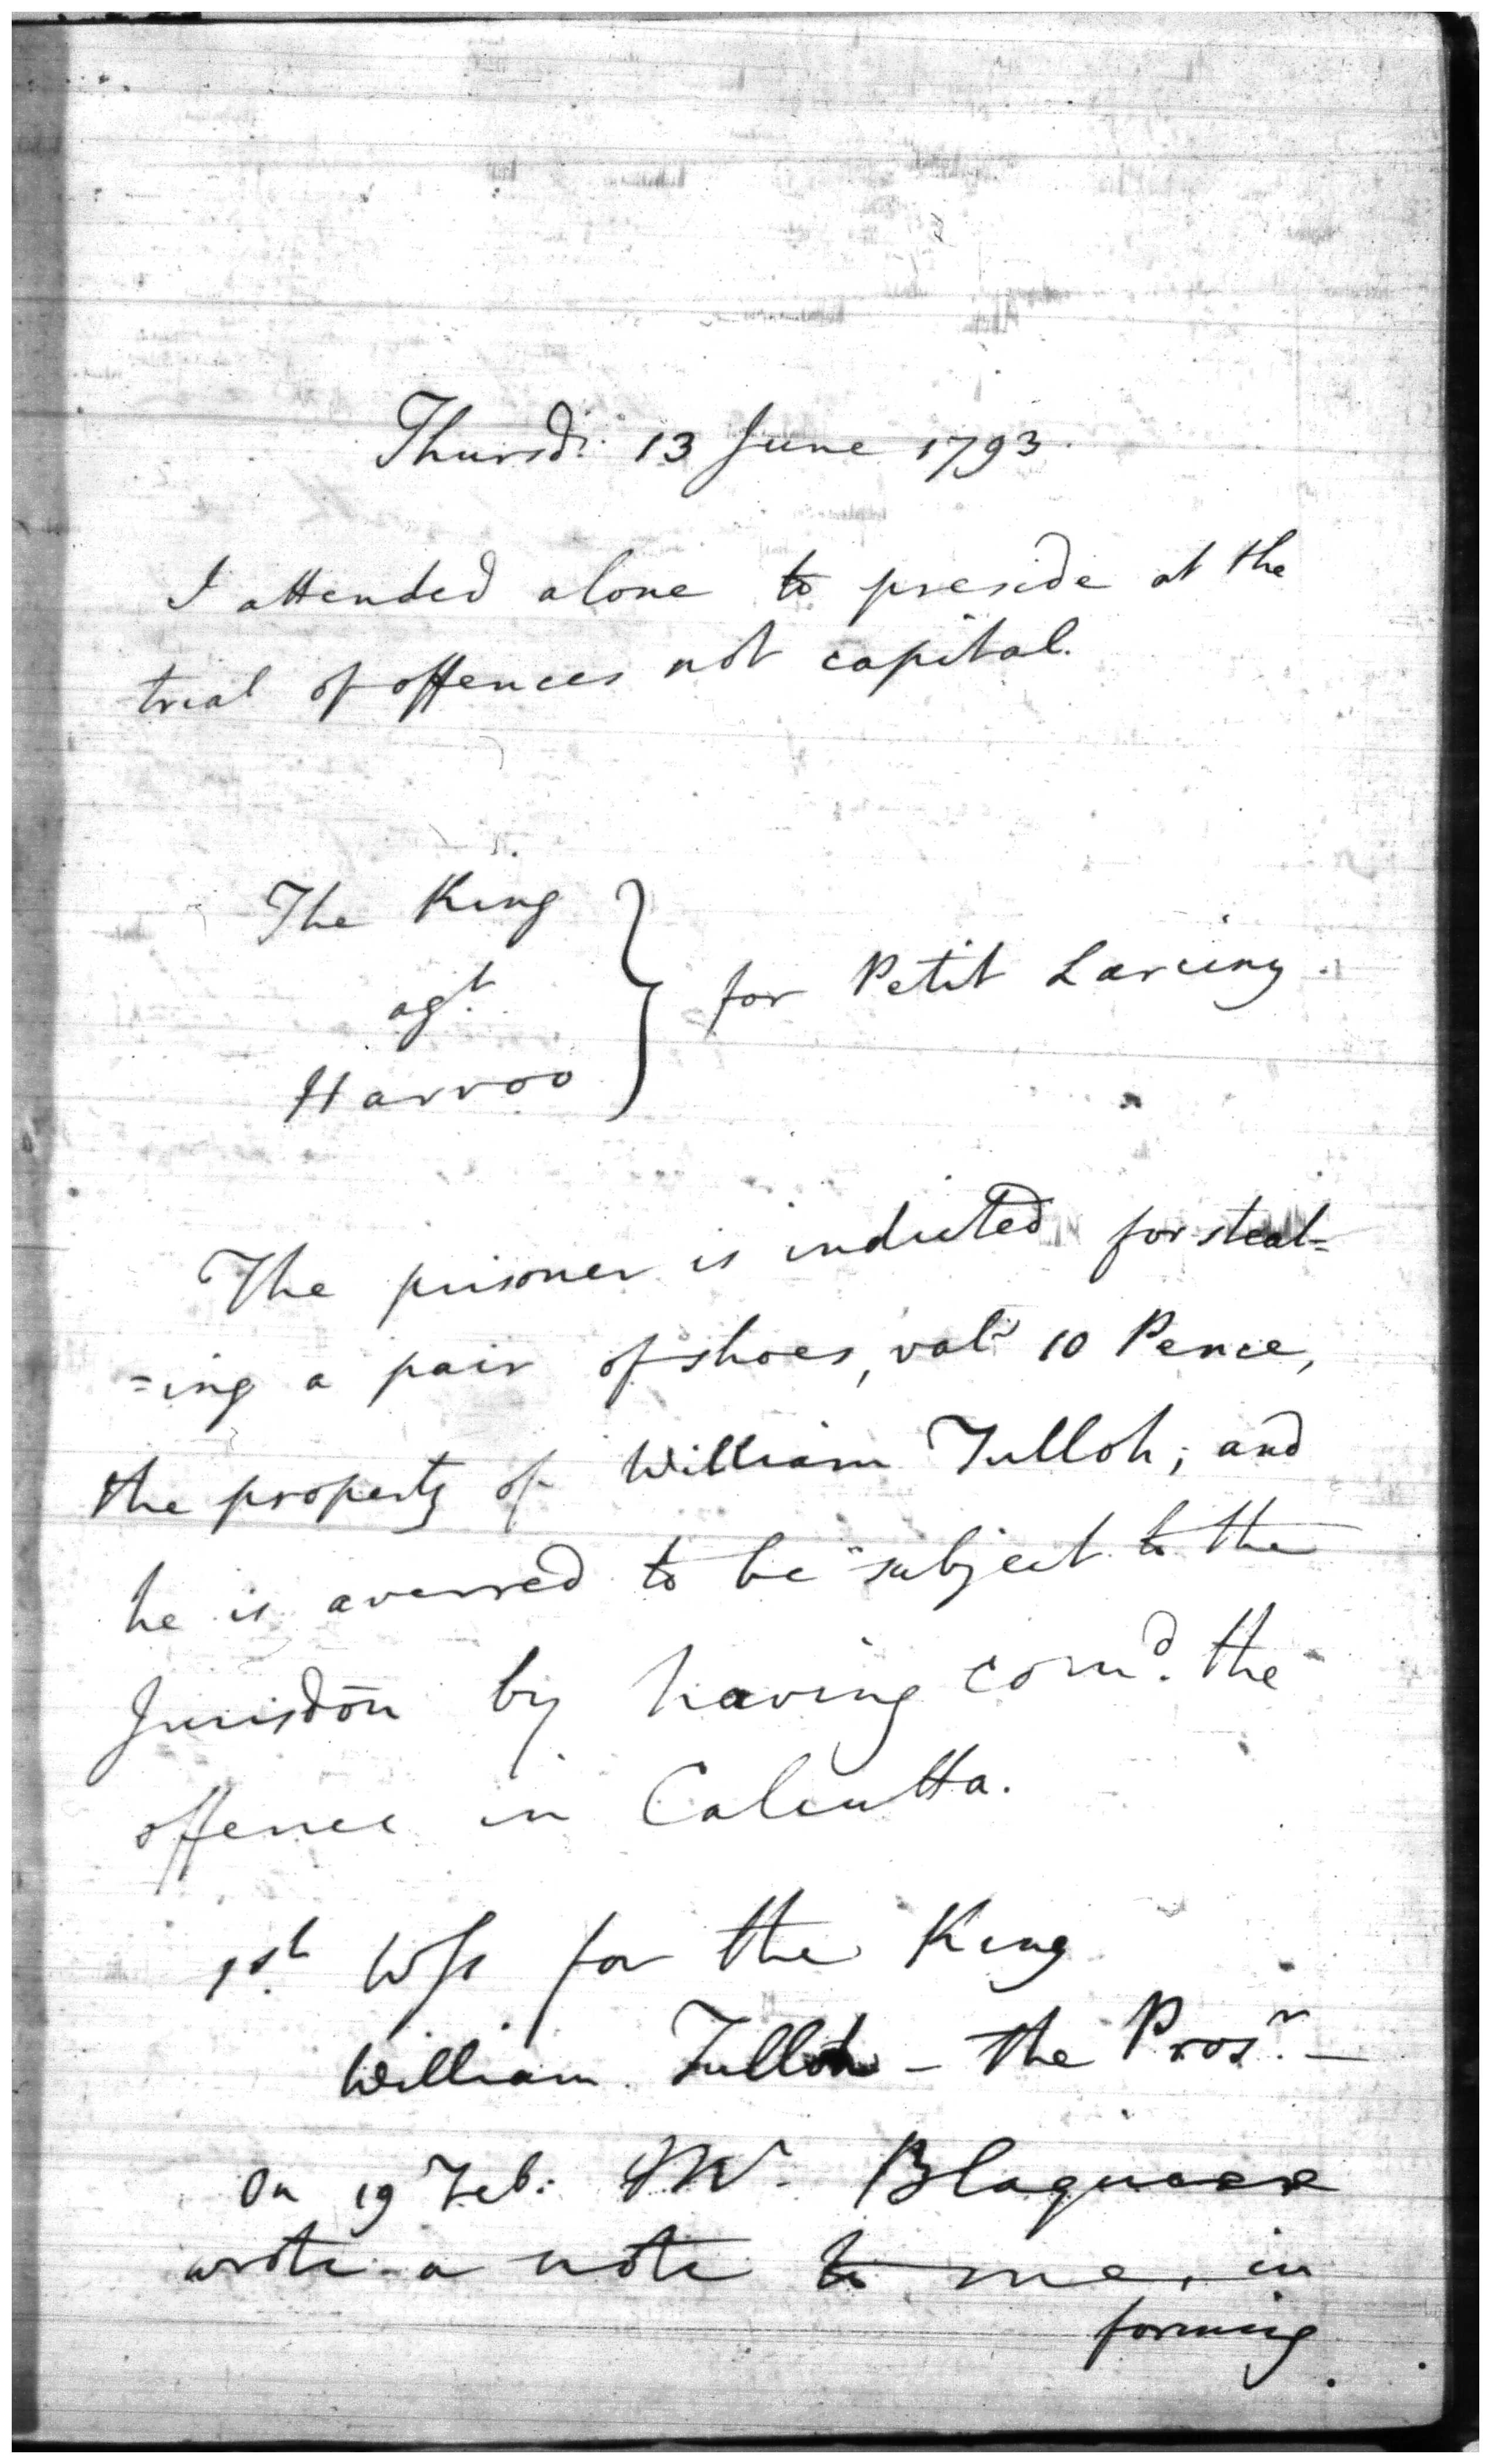 Thursd: 13 June 1793.
I attended alone to preside at the
trial of offences not capital.
The King
agt.
Harroo
} for Petit Larceny.
The prisoner is indicted for steal=
=ing a pair of shoes, val. 10 Pence,
the property of William Tulloh; and
he is averred to be subject to the
Jurisdon by having comd. the
offence in Calcutta.
1st. Wss for the King
William Tulloh – the Prosr. –
On 19 Feb: Mr. Blaquiere
wrote a note to me, in
forming